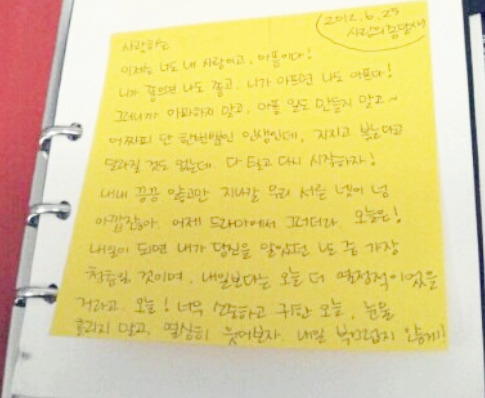 2012. 6. 25
사랑의 종달새
사랑하는
이제는 너도 내 사랑이고, 아픔이다!
니가 좋으면 나도 좋고, 니가 아프면 나도 아프다!
그러니까 아파하지 말고, 아플 일도 만들지 말고~
어짜피 단 한번뿐인 인생인데, 지지고 볶는다고
달라질 것도 없는데. 다 털고 다시 시작하자!
내내 끙끙 앓고만 지나갈 우리 서른 넷이 넘
아깝잖아. 어제 드라마에서 그러더라. 오늘은!
내일이 되면 내가 당신을 알았던 날도 중 가장
것이며, 내일보다는 오늘 더 열정적이었을
거라고. 오늘! 너무 소중하고 귀한 오늘, 눈물
흘리지 말고, 열심히 웃어보자. 내일 부끄럽지 않게!